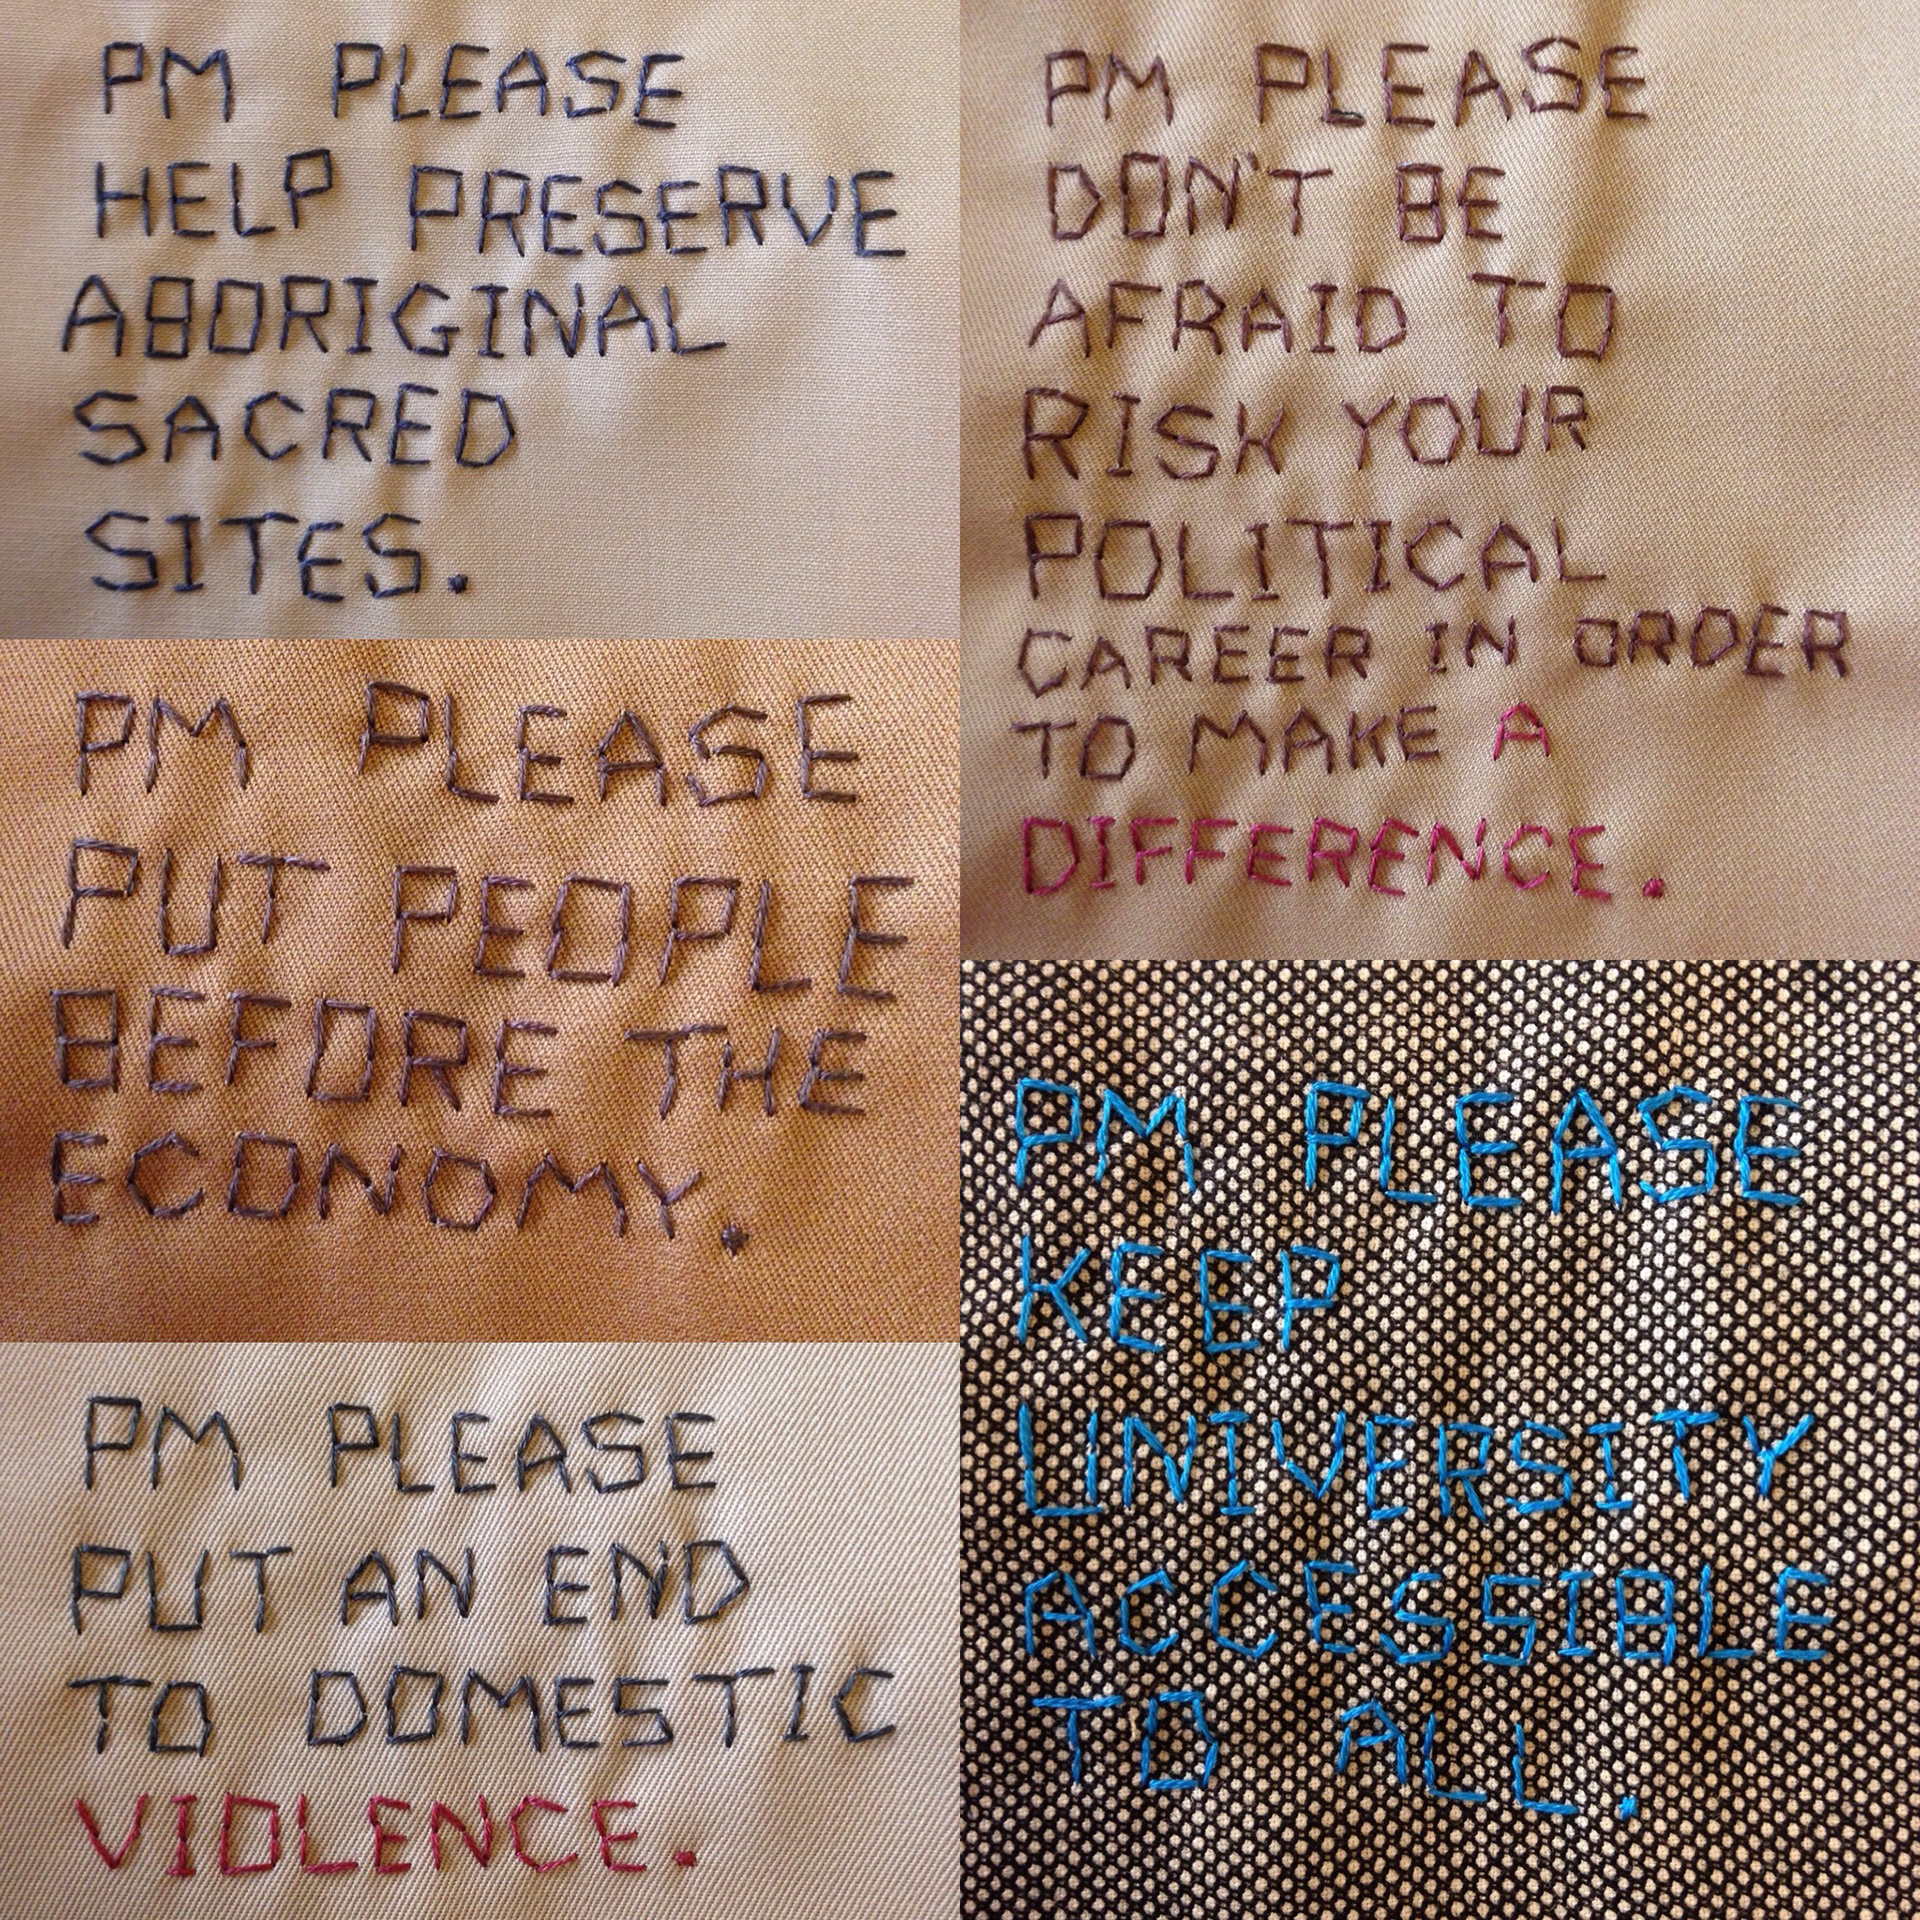 PM PLEASE
HELP PRESERVE
ABORIGINAL
SACRED
SITES.
PM PLEASE
DON'T BE
AFRAID TO
RISK YOUR
POLITICAL
CAREER IN ORDER
TO MAKE A
DIFFERENCE.
PM PLEASE
PUT PEOPLE
BEFORE THE
ECONOMY.
PM PLEASE
KEEP
UNIVERSITY
ACCESSIBLE
TO ALL.
PM PLEASE
PUT AN END
TO DOMESTIC
VIOLENCE.